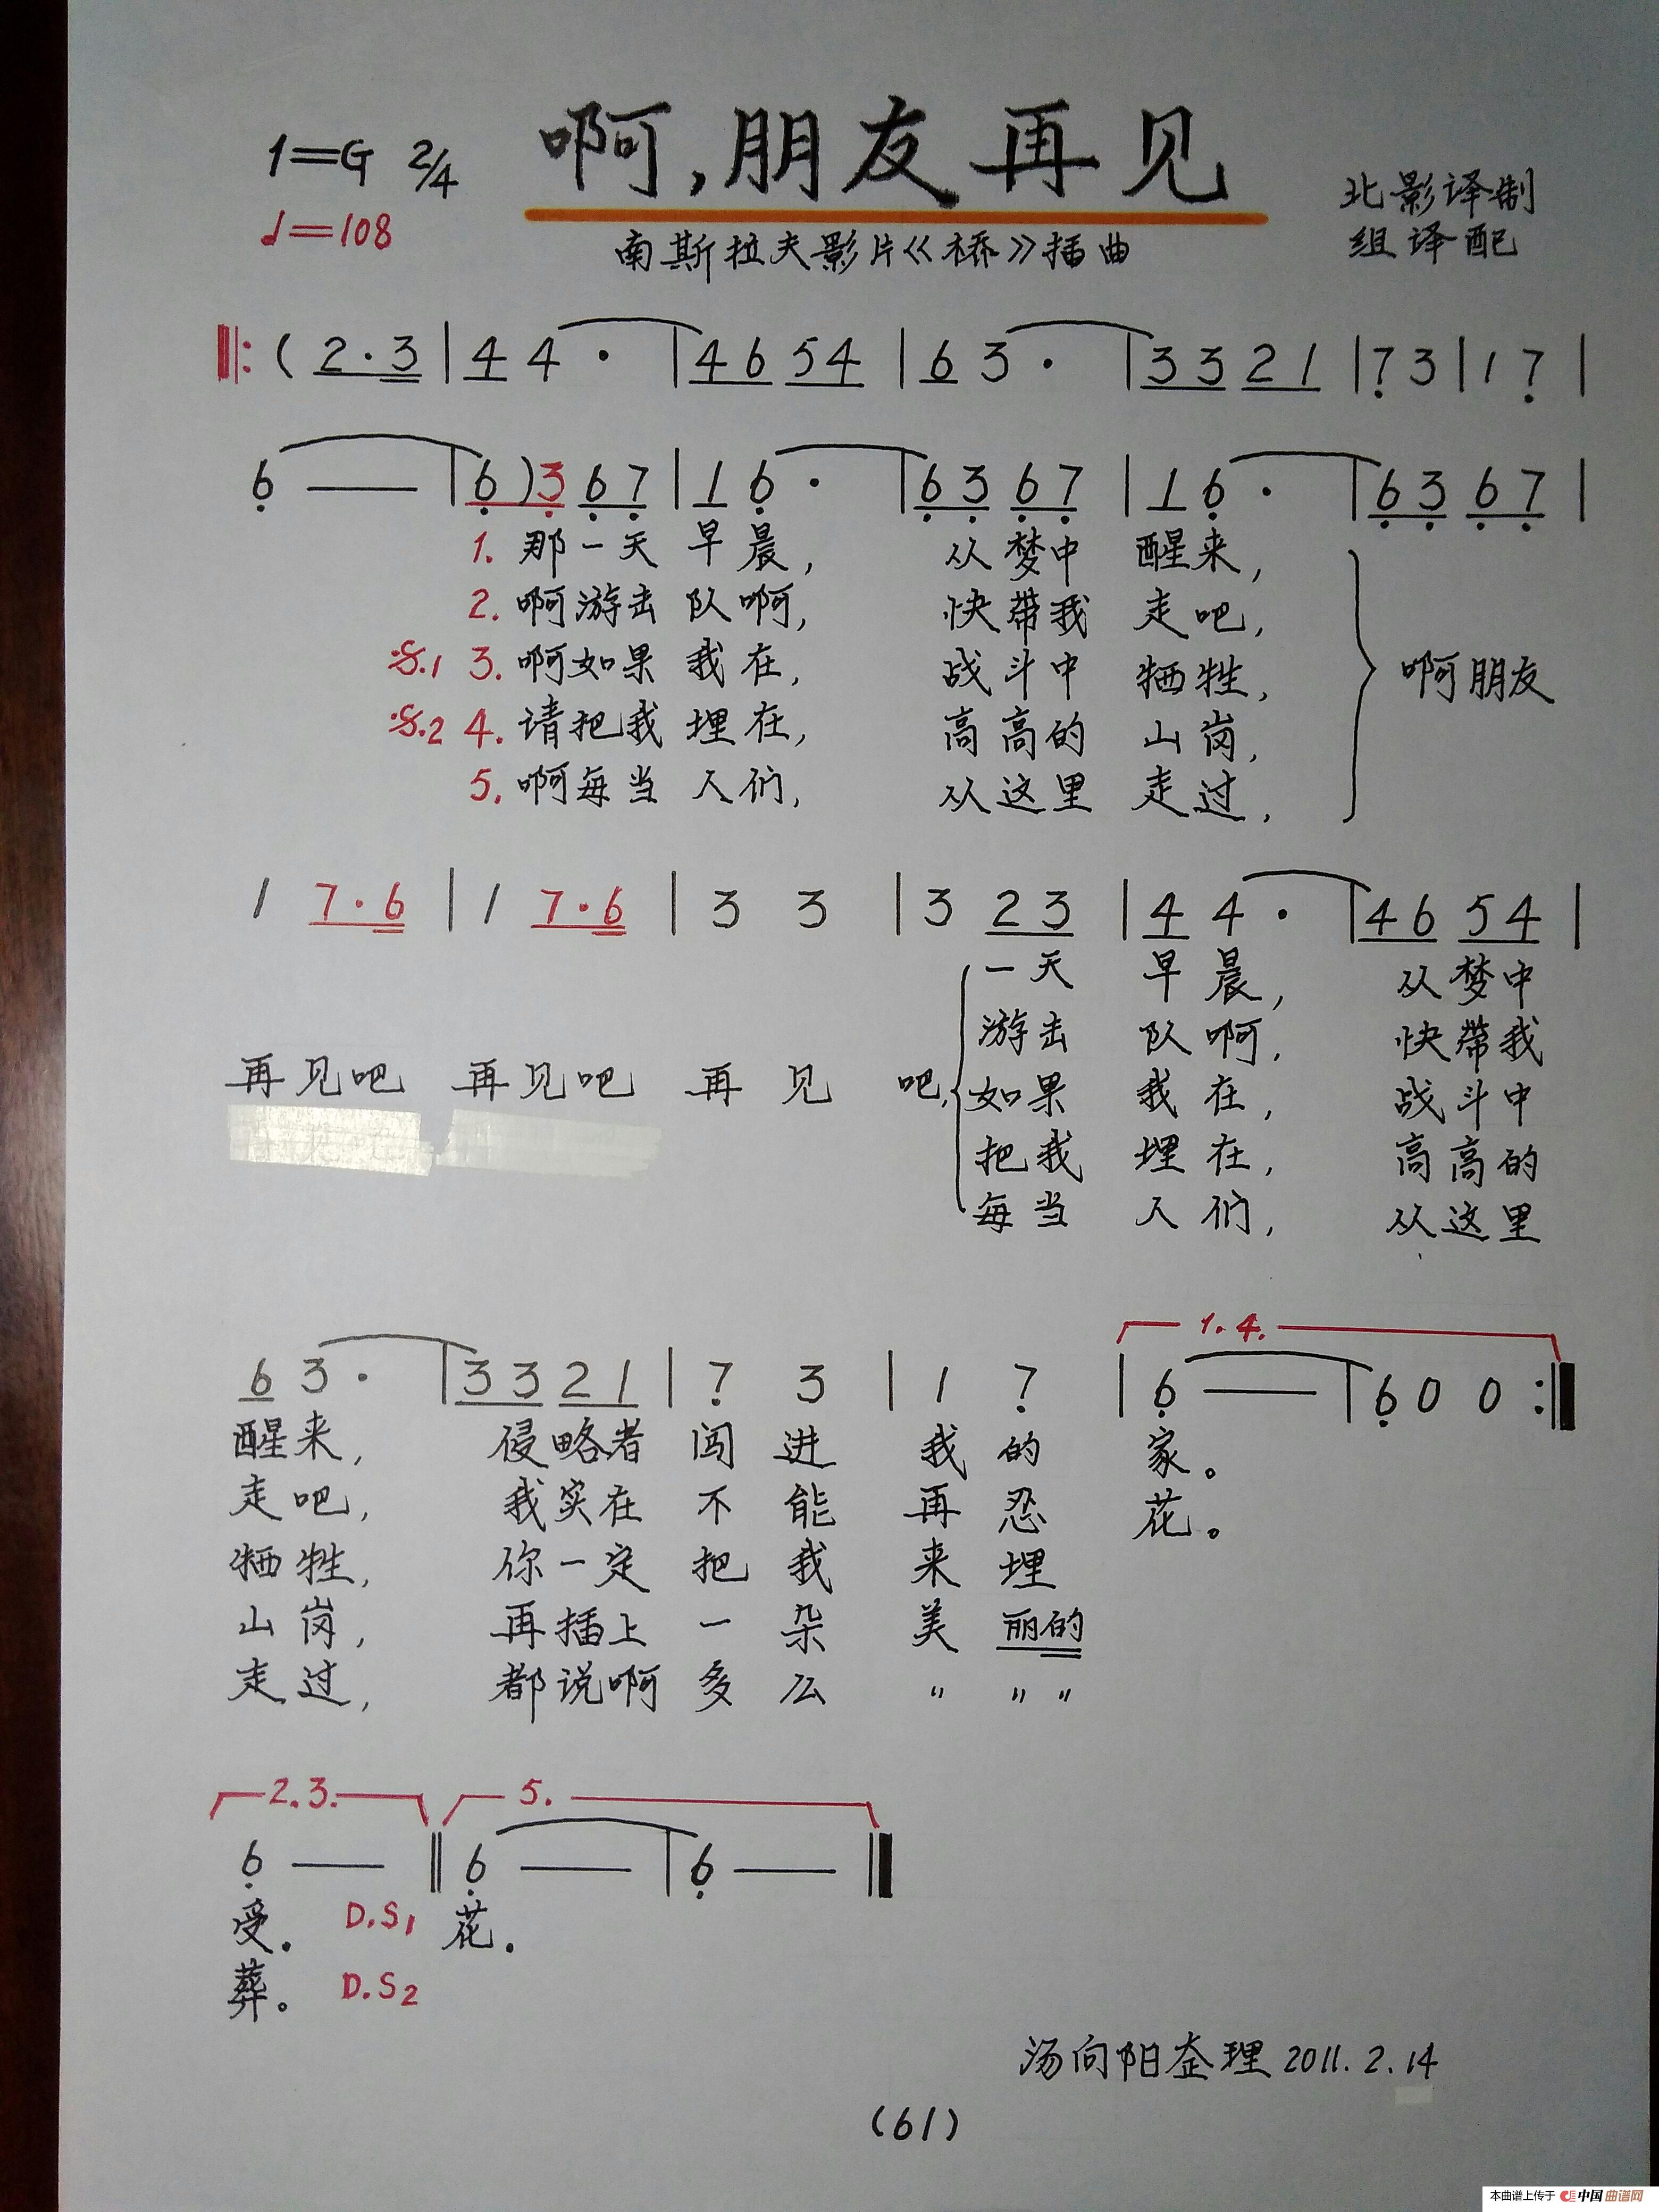 1=G 2/4
啊,朋友再见
♩=108
南斯拉夫影片《桥》插曲
北影译制
组译配
‖: ( 2·3 | 4 4 · | 4 6 5 4 | 6 3 · | 3 3 2 1 | 7 3 | 1 7 |
6 — | 6 ) 3 6 7 | 1 6 · | 6 3 6 7 | 1 6 · | 6 3 6 7 |
1. 那一天 早晨, 从梦中 醒来,
2. 啊游击 队啊, 快带我 走吧,
𝄋.1 3. 啊如果 我在, 战斗中 牺牲, 啊朋友
𝄋.2 4. 请把我 埋在, 高高的 山岗,
5. 啊每当 人们, 从这里 走过,
1 7·6 | 1 7·6 | 3 3 | 3 2 3 | 4 4 · | 4 6 5 4 |
一天 早晨, 从梦中
游击 队啊, 快带我
再见吧 再见吧 再见 吧, 如果 我在, 战斗中
把我 埋在, 高高的
每当 人们, 从这里
1. 4.
6 3 · | 3 3 2 1 | 7 3 | 1 7 | 6 — | 6 0 0 :‖
醒来, 侵略者 闯进 我的 家。
走吧, 我实在 不能 再忍 花。
牺牲, 你一定 把我 来埋
山岗, 再插上 一朵 美丽的
走过, 都说啊 多么 〃 〃 〃
2. 3. 5.
6 — ‖ 6 — | 6 — ‖
受. D.S1 花.
葬。 D.S2
汤向阳整理 2011.2.14
(61)
本曲谱上传于 中国曲谱网